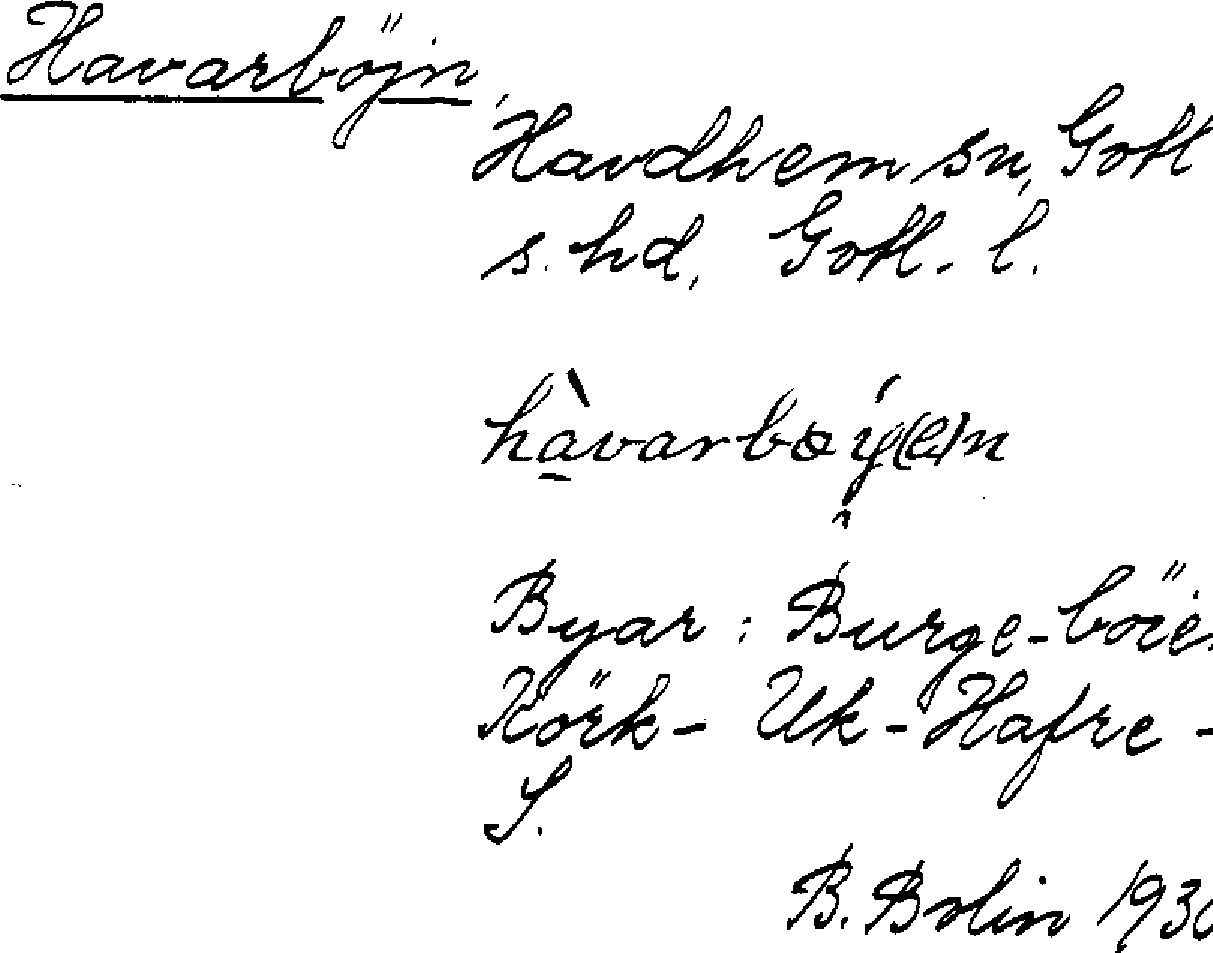 Havarböjn,
Havdhem sn, Gotl
s. hd, Gotl. l.
hàvarbøy(e)n
Byar: Burge-böie
Körk- Uk- Hafre -
S.
B. Bolin 193